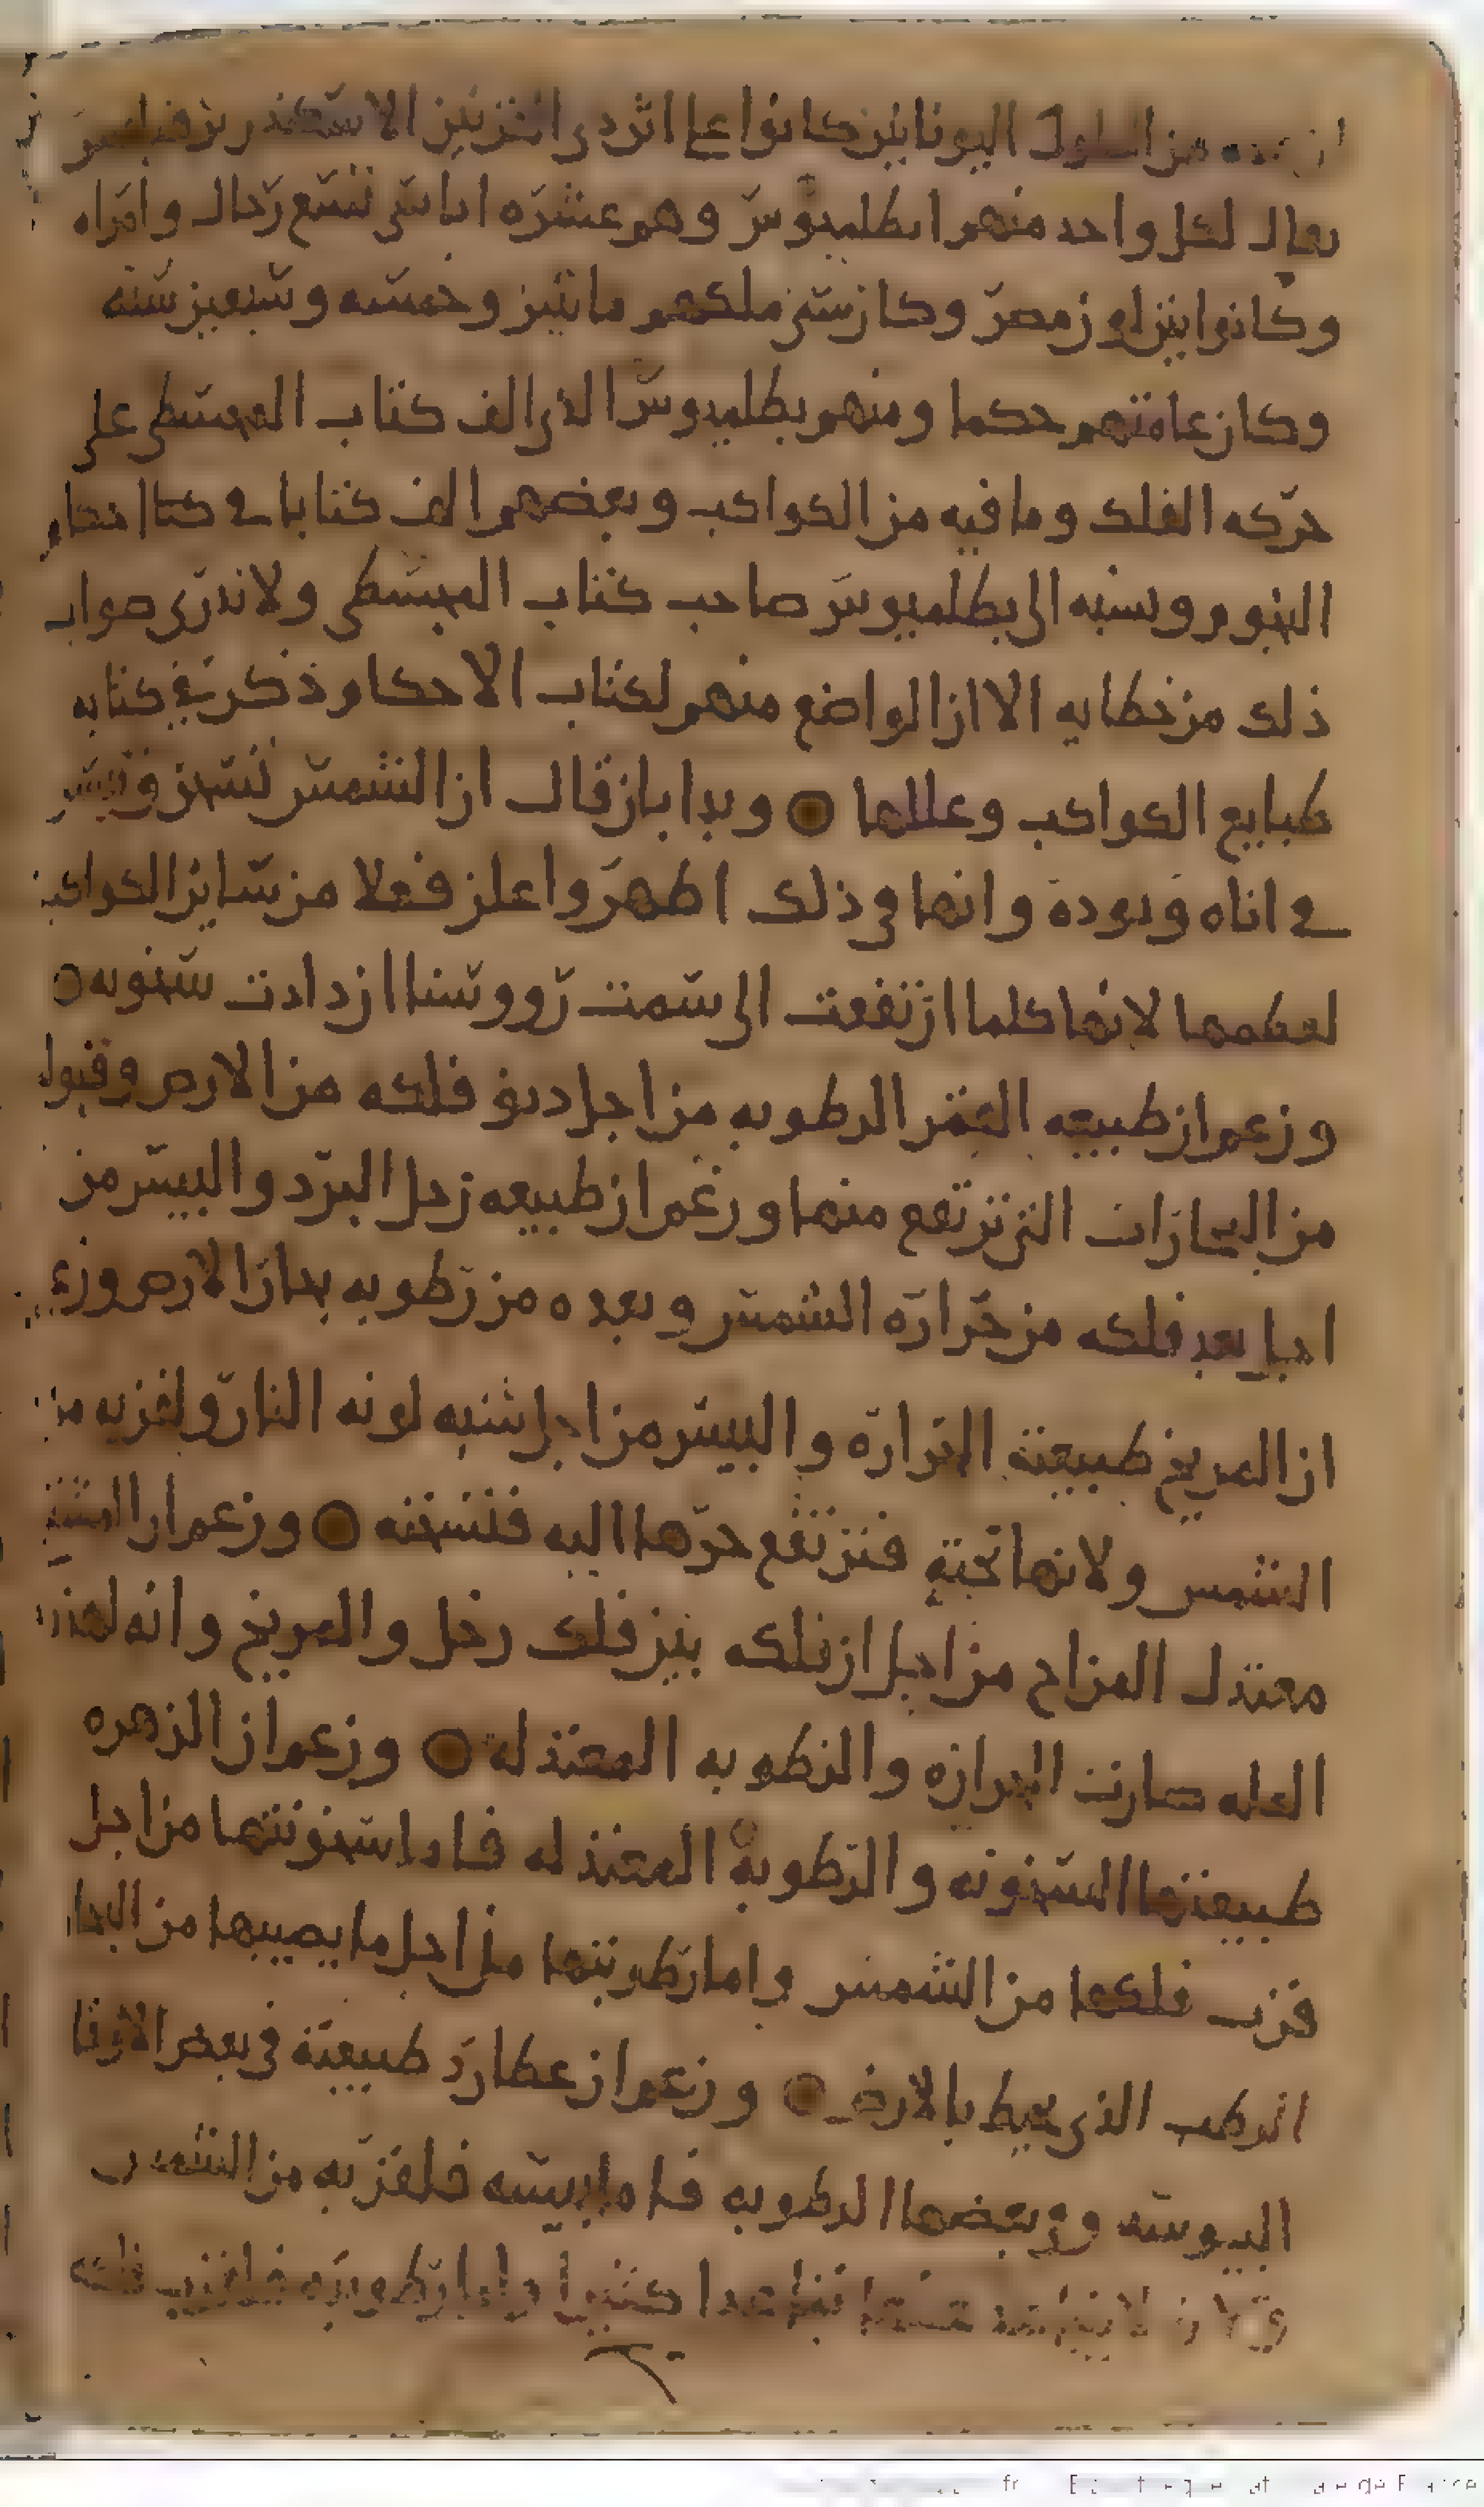 من الملوك اليونانين كانوا على اثر دى القرنين الاسكندر بن فيلبس
يقال لكل واحد منهم ابطلميوس وهم عشره اناسى تسع رجال وامراه
وكانوا ينزلون مصر وكان سنى ملكهم مايتين وخمسه وسبعين سنه
وكان عامتهم حكما ومنهم بطلميوس الذى الف كتاب المجسطى على
حركه الفلك وما فيه من الكواكب وبعضهم الف كتابا فى احكام
النجوم ونسبه الى بطلميوس صاحب كتاب المجسطى ولا ندرى صواب
ذلك من خطايه الا ان الواضع منهم لكتاب الاحكام ذكر فى كتابه
طبايع الكواكب وعللها ٥ وبدا بان قال ان الشمس تسخن وتيبس
فى اناه وتوده وانها فى ذلك اظهر واعلن فعلا من ساير الكواكب
لعظمها لانها كلما ارتفعت الى سمت رووسنا ازدادت سخونه ٥
وزعم ان طبيعه القمر الرطوبه من اجل دنو فلكه من الارض وقبوله
من البخارات التى ترتفع منها وزعم ان طبيعه زحل البرد واليبس من
اجل بعد فلكه من حراره الشمس وبعده من رطوبه بخار الارض وزعم
ان المريخ طبيعته الحراره واليبس من اجل شبه لونه النار ولقربه من
الشمس ولانها تحته فترتفع حرها اليه فتسخنه ٥ وزعم ان المشترى
معتدل المزاج من اجل ان فلكه بين فلك زحل والمريخ وانه لهذه
العله صارت الحراره والرطوبه المعتدله ٥ وزعم ان الزهره
طبيعتها السخونه والرطوبه المعتدله فاما سخونتها من اجل
قرب فلكها من الشمس واما رطوبتها من اجل ما يصيبها من البخار
الرطب الذى يحيط بالارض ٥ وزعم ان عطارد طبيعته فى بعض الاوقات
اليبوسه وفى بعضها الرطوبه فاما يبسه فلقربه من الشمس
لانه لا يتباعد عنها تباعدا كثيرا واما رطوبته فلقرب فلكه